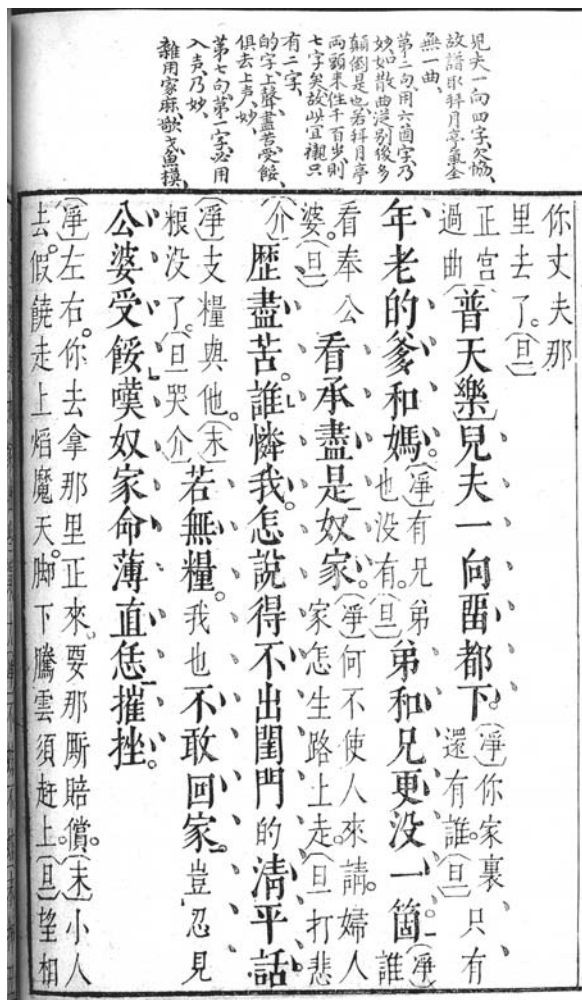 兒夫一向四字欠協、
故譜取拜月亭氣全
無一曲、
第二句用六個字乃
妙如散曲從別後多
顛倒是也若拜月亭
兩頭來往千百步則
七字矣故此宜襯只
有二字、
的字上聲盡苦受餒
俱去上声妙、
第七句第一字必用
入声乃妙、
雜用家麻歌戈魚模、
你丈夫那
里去了。(旦)
正宮過曲【普天樂】兒夫一向畱都下。(淨)你家裏還有誰(旦)只有
年老的爹和媽。(淨)有兄弟也没有。(旦)弟和兄更没一箇。(淨)誰
看奉公婆。(旦)看承盡是奴家。(淨)何不使人來請。婦人家怎生路上走。(旦打悲
介)歷盡苦。誰憐我。怎說得不出閨門的清平話。
(淨)支糧與他。(末)粮没了。(旦哭介)若無糧。我也不敢回家。豈忍見
公婆受餒嘆奴家命薄直恁摧挫。
(淨)左右。你去拿那里正來。要那厮賠償。(末)小人
去。假饒走上焰魔天。脚下騰雲須赶上。(旦)望相